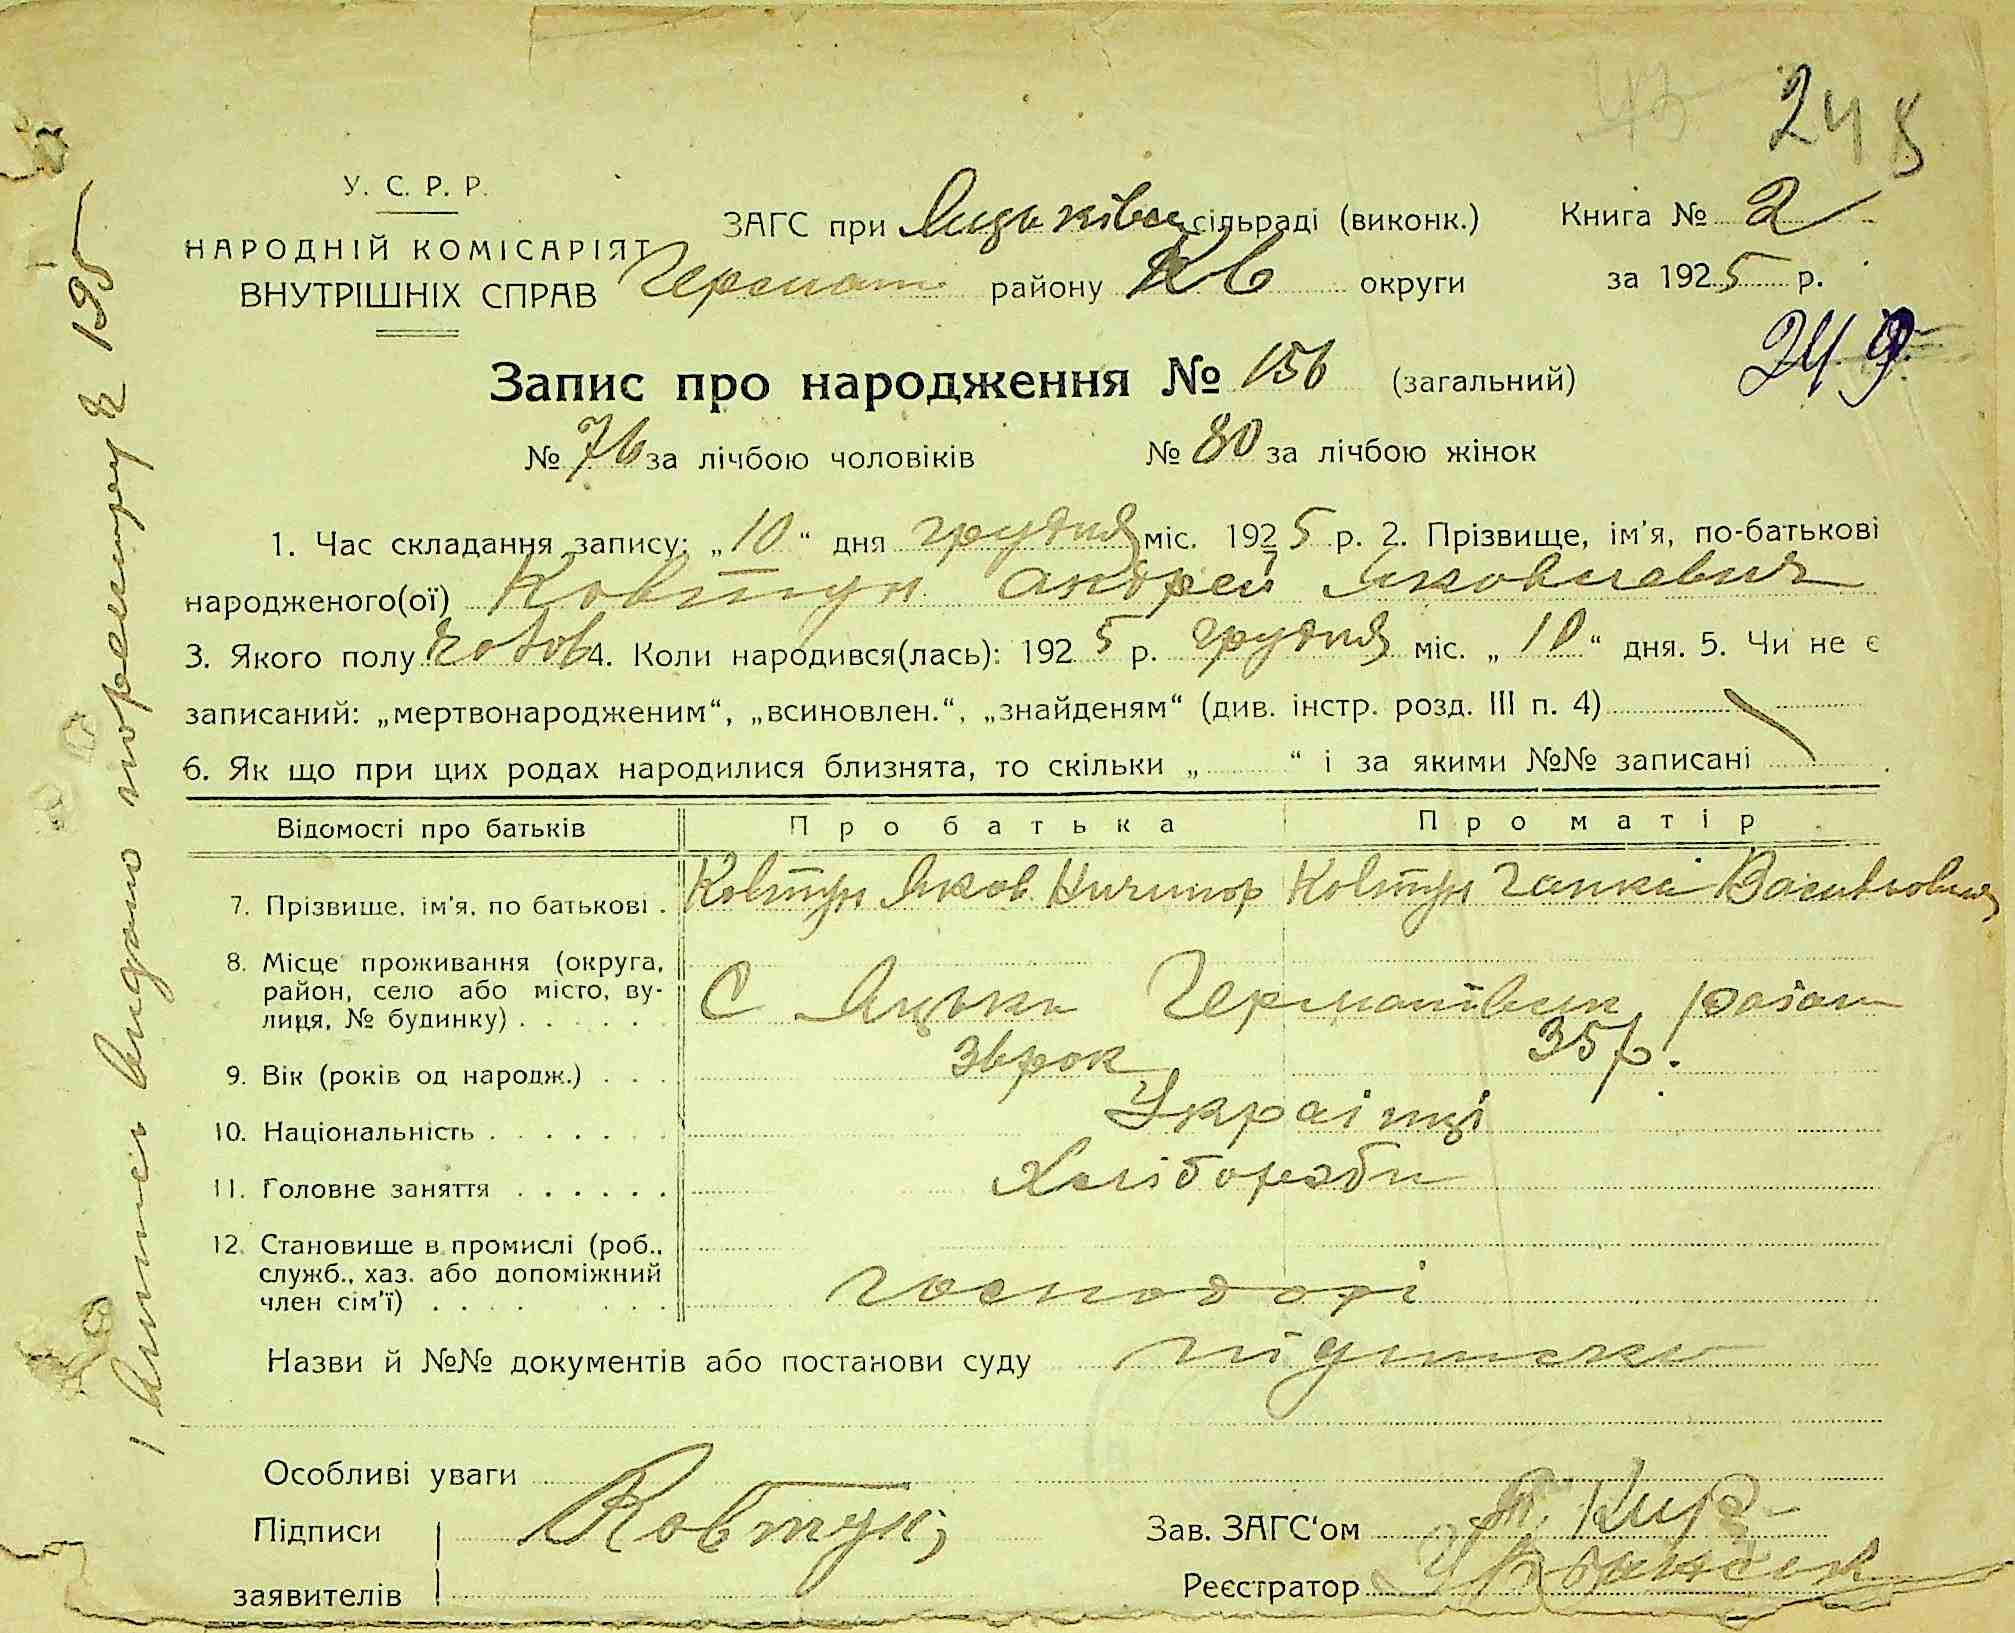 248
У. С. Р. Р.
НАРОДНІЙ КОМІСАРІЯТ
ВНУТРІШНІХ СПРАВ
ЗАГС при Яцьківськ сільраді (виконк.) Книга № 2
Герман районy КВ округи за 1925 р.
249
Запис про народження № 156 (загальний)
№ 76 за лічбою чоловіків № 80 за лічбою жінок
1. Час складання запису: „10“ дня грудня міс. 1925 р. 2. Прізвище, ім'я, по-батькові
народженого(ої) Ковтун Андрей Яковлевич
3. Якого полу чолов 4. Коли народився(лась): 1925 р. грудня міс. „10“ дня. 5. Чи не є
записаний: „мертвонародженим“, „всиновлен.“, „знайденям“ (див. інстр. розд. III п. 4)
6. Як що при цих родах народилися близнята, то скільки „ “ і за якими №№ записані
Відомості про батьків Про батька Про матір
7. Прізвище, ім'я, по батькові . Ковтун Яков Ничипор Ковтун Ганна Васильовна
8. Місце проживання (округа,
район, село або місто, ву-
лиця, № будинку) . . . . . . С Яцьки Германівськ район
9. Вік (років од народж.) . . . 36 рок 35 р.
10. Національність . . . . . . . Українці
11. Головне заняття . . . . . . Хлібороби
12. Становище в промислі (роб.,
служб., хаз. або допоміжний
член сім'ї) . . . . . . . . господарі
Назви й №№ документів або постанови суду
Особливі уваги
Підписи Ковтун
заявителів
Зав. ЗАГС'ом
Реєстратор